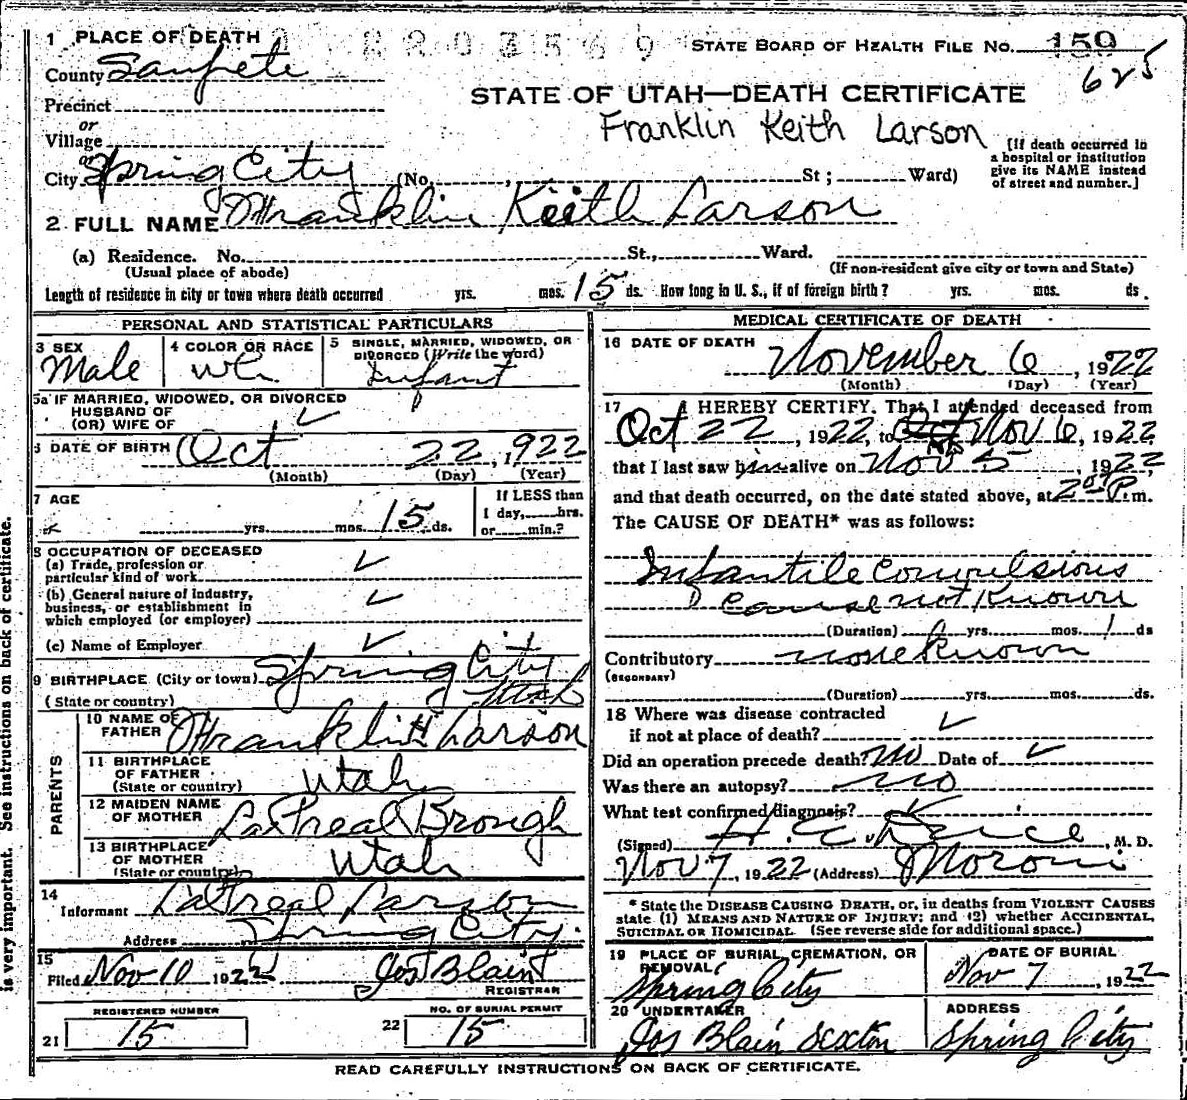 1 PLACE OF DEATH
STATE BOARD OF HEALTH FILE NO. 159
County Sanpete
625
Precinct
STATE OF UTAH—DEATH CERTIFICATE
or
Village
Franklin Keith Larson
or
City Spring City (No. , St ; Ward)
[If death occurred in
a hospital or institution
give its NAME instead
of street and number.]
2 FULL NAME Franklin Keith Larson
(a) Residence. No. St., Ward.
(Usual place of abode)
(If non-resident give city or town and State)
Length of residence in city or town where death occurred yrs. mos. 15 ds. How long in U. S., if of foreign birth? yrs. mos. ds.
PERSONAL AND STATISTICAL PARTICULARS
3 SEX
Male
4 COLOR OR RACE
wh
5 SINGLE, MARRIED, WIDOWED, OR
DIVORCED (Write the word)
Infant
5a IF MARRIED, WIDOWED, OR DIVORCED
HUSBAND OF
(OR) WIFE OF
6 DATE OF BIRTH Oct 22, 1922
(Month) (Day) (Year)
7 AGE
yrs. mos. 15 ds.
If LESS than
1 day, hrs.
or min.?
8 OCCUPATION OF DECEASED
(a) Trade, profession or
particular kind of work
(b) General nature of industry,
business, or establishment in
which employed (or employer)
(c) Name of Employer
9 BIRTHPLACE (City or town) Spring City
(State or country) Utah
PARENTS
10 NAME OF
FATHER Franklin Larson
11 BIRTHPLACE
OF FATHER
(State or country) Utah
12 MAIDEN NAME
OF MOTHER LaPreal Brough
13 BIRTHPLACE
OF MOTHER
(State or country) Utah
14
Informant LaPreal Larson
Address Spring City.
15
Filed Nov 10 1922 Jos Blain
REGISTRAR
REGISTERED NUMBER
21 15
NO. OF BURIAL PERMIT
22 15
MEDICAL CERTIFICATE OF DEATH
16 DATE OF DEATH
November 6, 1922
(Month) (Day) (Year)
17 I HEREBY CERTIFY. That I attended deceased from
Oct 22, 1922, to Oct Nov 6, 1922
that I last saw him alive on Nov 5, 1922,
and that death occurred, on the date stated above, at 2 P.m.
The CAUSE OF DEATH* was as follows:
Infantile Convulsions
Cause not Known
(Duration) yrs. mos. 1 ds
Contributory none known
(SECONDARY)
(Duration) yrs. mos. ds.
18 Where was disease contracted
if not at place of death?
Did an operation precede death? no Date of
Was there an autopsy? no
What test confirmed diagnosis?
(Signed) H. C. , M. D.
Nov 7, 1922 (Address) Moroni
* State the DISEASE CAUSING DEATH, or, in deaths from VIOLENT CAUSES
state (1) MEANS AND NATURE OF INJURY; and (2) whether ACCIDENTAL,
SUICIDAL OR HOMICIDAL. (See reverse side for additional space.)
19 PLACE OF BURIAL, CREMATION, OR
REMOVAL
Spring City
DATE OF BURIAL
Nov 7, 1922
20 UNDERTAKER
Jos Blain Sexton
ADDRESS
Spring City
READ CAREFULLY INSTRUCTIONS ON BACK OF CERTIFICATE.
is very important. See instructions on back of certificate.